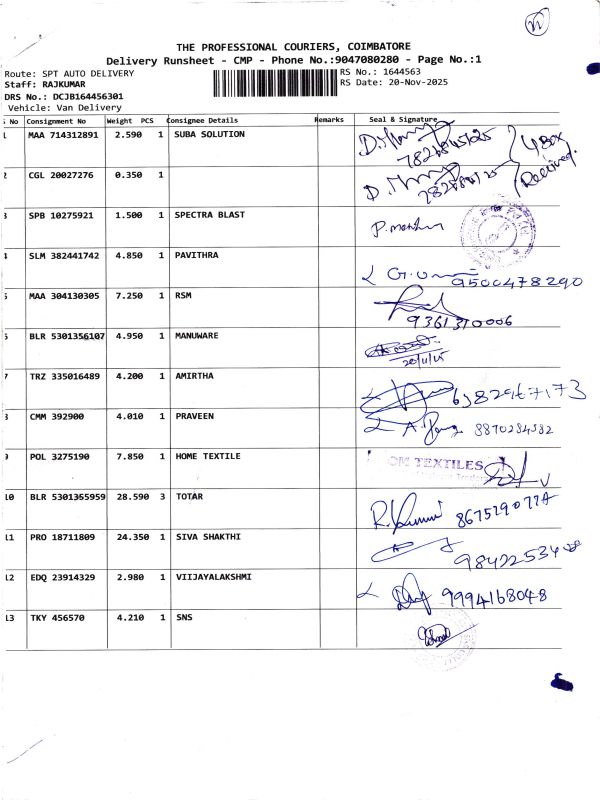 THE PROFESSIONAL COURIERS, COIMBATORE
Delivery Runsheet - CMP - Phone No.:9047080280 - Page No.:1
Route: SPT AUTO DELIVERY
RS No.: 1644563
Staff: RAJKUMAR
RS Date: 20-Nov-2025
DRS No.: DCJB164456301
Vehicle: Van Delivery
S No Consignment No Weight PCS Consignee Details Remarks Seal & Signature
1 MAA 714312891 2.590 1 SUBA SOLUTION
4 Box Received.
2 CGL 20027276 0.350 1
3 SPB 10275921 1.500 1 SPECTRA BLAST
4 SLM 382441742 4.850 1 PAVITHRA 9500478290
5 MAA 304130305 7.250 1 RSM 9361310006
6 BLR 5301356107 4.950 1 MANUWARE 20/11/25
7 TRZ 335016489 4.200 1 AMIRTHA 6382967173
8 CMM 392900 4.010 1 PRAVEEN 8870284582
9 POL 3275190 7.850 1 HOME TEXTILE OM TEXTILES
10 BLR 5301365959 28.590 3 TOTAR
11 PRO 18711809 24.350 1 SIVA SHAKTHI
12 EDQ 23914329 2.980 1 VIIJAYALAKSHMI 9994168048
13 TKY 456570 4.210 1 SNS